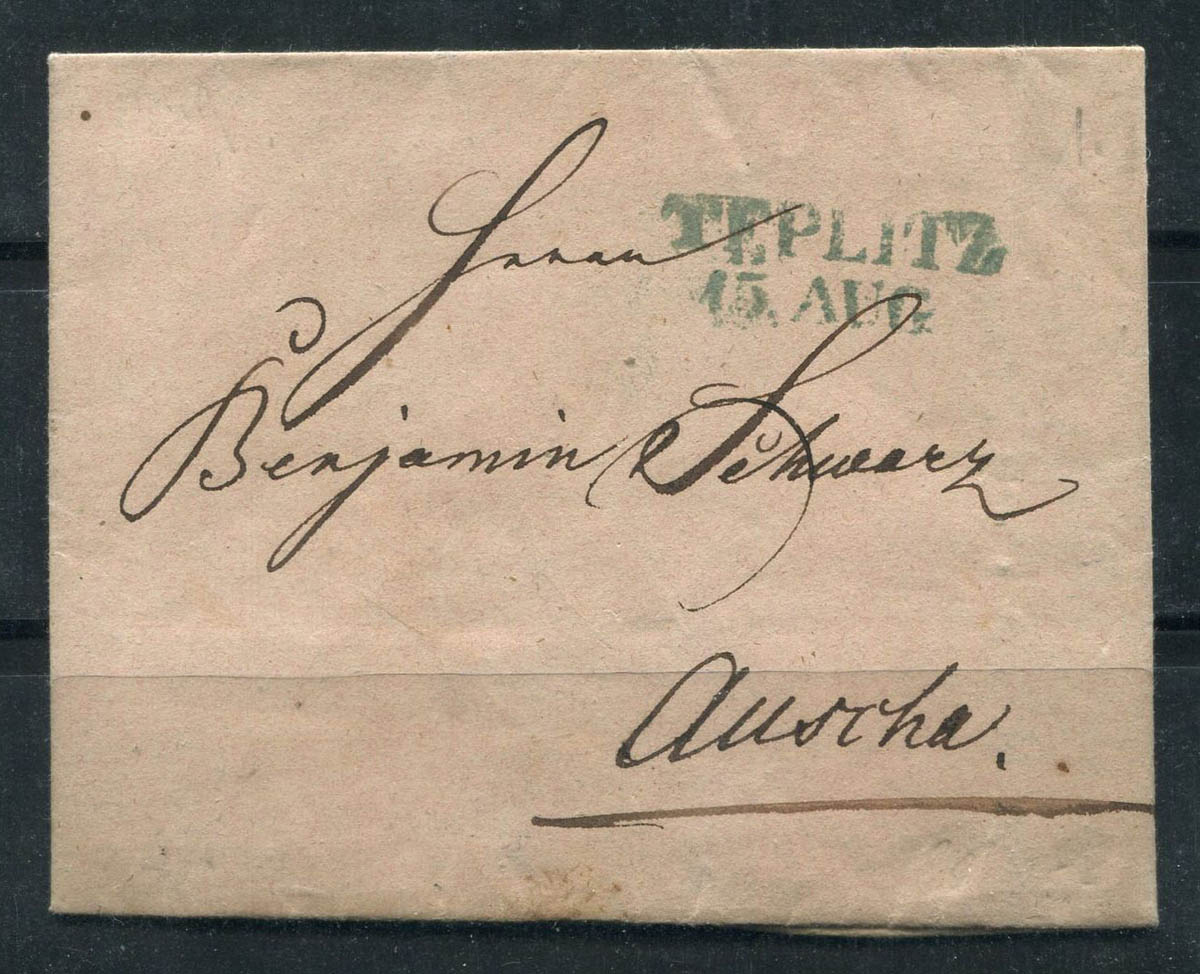 TEPLITZ
15. AUG
Herrn
Benjamin Schwarz
Auscha.